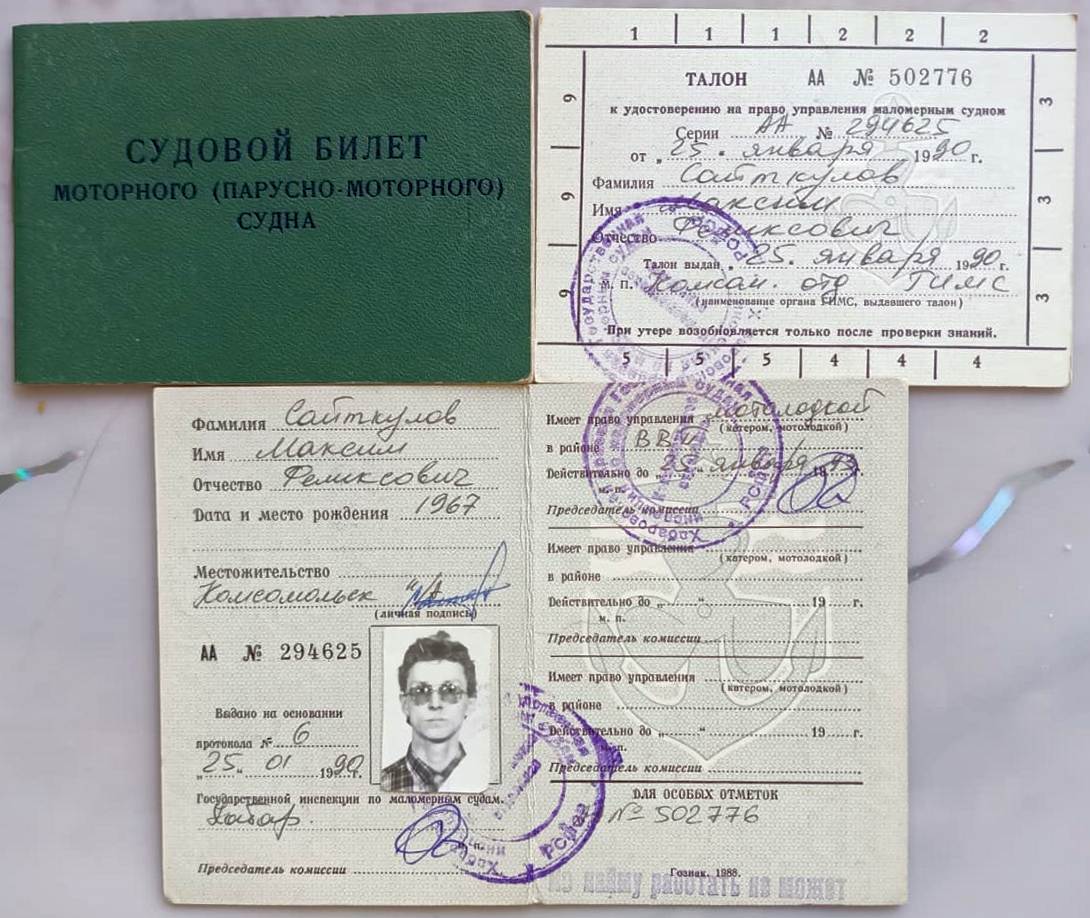 СУДОВОЙ БИЛЕТ
МОТОРНОГО (ПАРУСНО-МОТОРНОГО)
СУДНА
1 1 1 2 2 2
ТАЛОН АА № 502776
к удостоверению на право управления маломерным судном
Серии АА № 294625
от „ 25 " января 1990 г.
Фамилия Сайткулов
Имя Максим
Отчество Феликсович
Талон выдан „ 25 " января 1990 г.
м. п. Комсом. отд ГИМС
(наименование органа ГИМС, выдавшего талон)
При утере возобновляется только после проверки знаний.
5 5 5 4 4 4
9 9 9
3 3 3
Фамилия Сайткулов
Имя Максим
Отчество Феликсович
Дата и место рождения 1967
Местожительство
Комсомольск
(личная подпись)
АА № 294625
Выдано на основании
протокола № 6
„ 25 " 01 1990 г.
Государственной инспекции по маломерным судам.
Хабар.
Председатель комиссии
Имеет право управления мотолодкой
(катером, мотолодкой)
в районе ВВП
Действительно до „ 25 " января 19
м. п.
Председатель комиссии
Имеет право управления
(катером, мотолодкой)
в районе
Действительно до „ " 19 г.
м. п.
Председатель комиссии
Имеет право управления
(катером, мотолодкой)
в районе
Действительно до „ " 19 г.
м. п.
Председатель комиссии
ДЛЯ ОСОБЫХ ОТМЕТОК
№ 502776
Гознак. 1988.
по найму работать не может